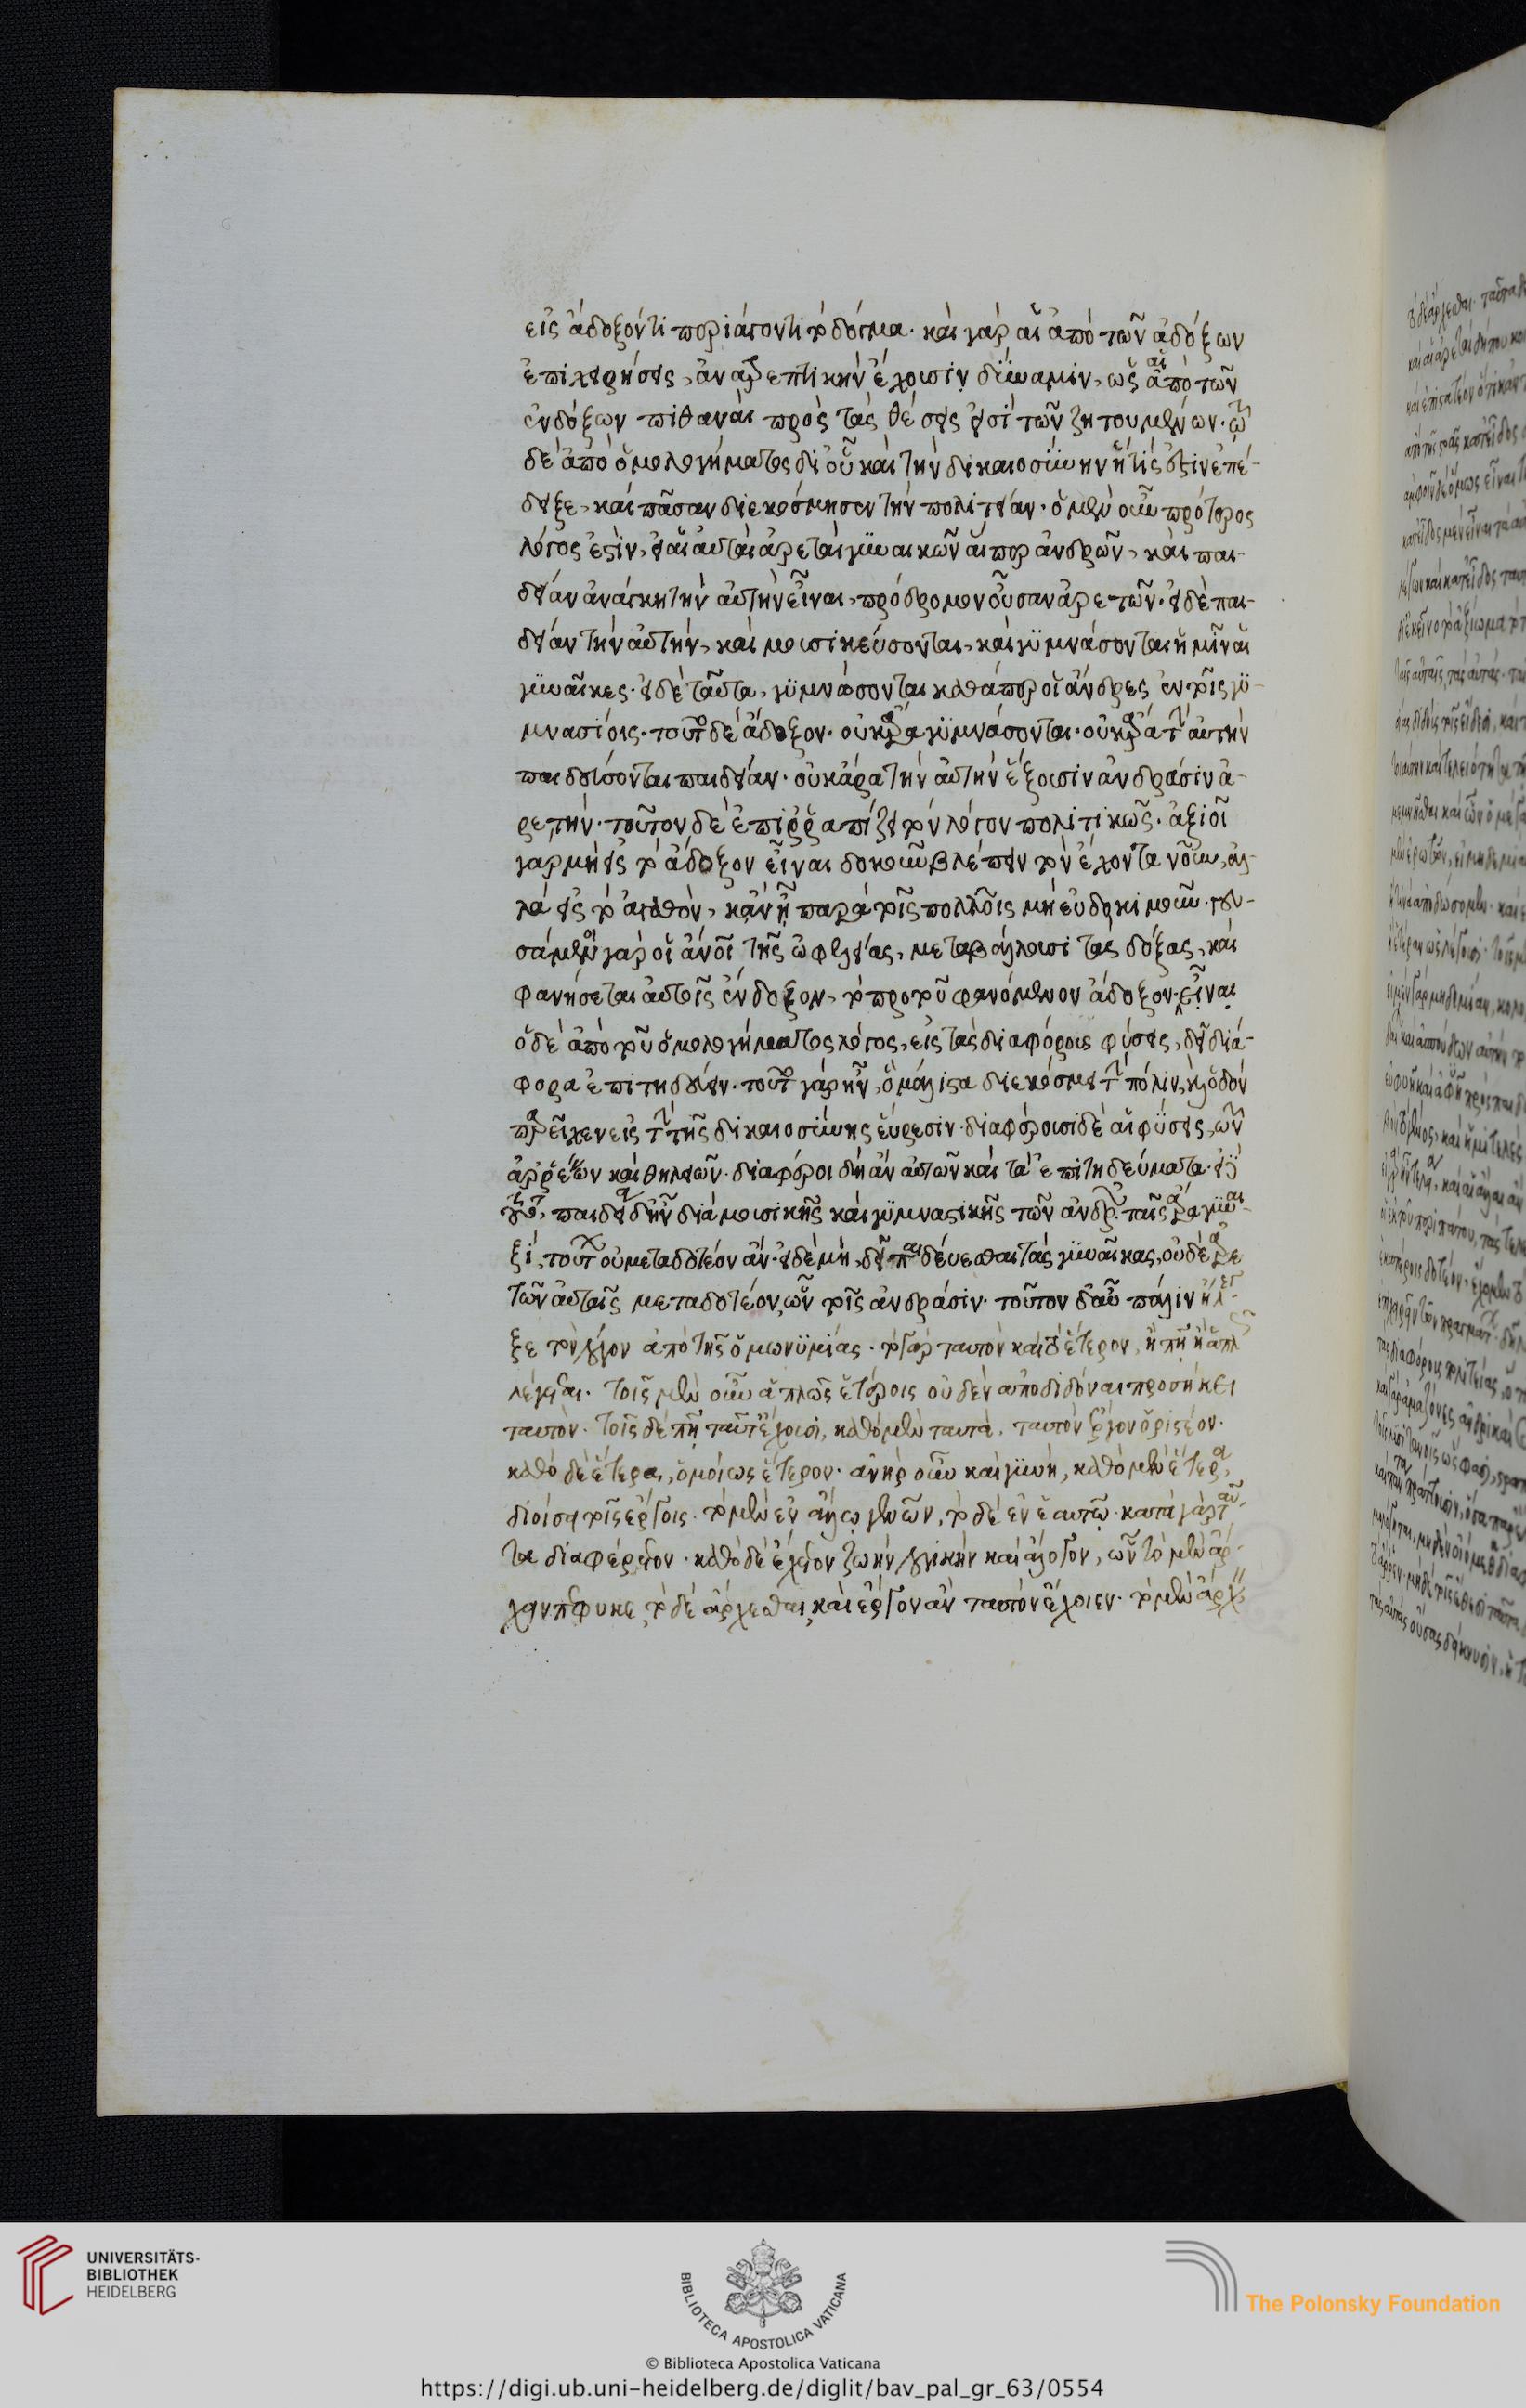 εἰς ἄδοξόν τι περιάγοντι τὸ δόγμα. καὶ γὰρ αἱ ἀπὸ τῶν ἀδόξων
ἐπιχειρήσεις, ἀναιρετικὴν ἔχουσιν δύναμιν, ὡς αἱ ἀπὸ τῶν
ἐνδόξων πιθαναὶ πρὸς τὰς θέσεις εἰσὶ τῶν ζητουμένων.
δὲ ἀπὸ ὁμολογήματος δι' οὗ καὶ τὴν δικαιοσύνην ἥτίς ἐστιν ἐπέ-
δειξε, καὶ πᾶσαν διεκόσμησεν τὴν πολιτείαν. ὁ μὲν οὖν πρότερος
λόγος ἐστὶν, εἰ αἱ αὐταὶ ἀρεταὶ γυναικῶν αἵπερ ἀνδρῶν, καὶ παι-
δείαν ἀνάγκη τὴν αὐτὴν εἶναι, πρόδρομον οὖσαν ἀρετῶν. εἰ δὲ παι-
δείαν τὴν αὐτήν, καὶ μουσικεύσονται, καὶ γυμνάσονται ἡμῖν αἱ
γυναῖκες. εἰ δὲ ταῦτα, γυμνάσονται καθάπερ οἱ ἄνδρες ἐν τοῖς γυ-
μνασίοις. τοῦτο δὲ ἄδοξον. οὐκ ἄρα γυμνάσονται. οὐκ ἄρα τὴν αὐτὴν
παιδεύσονται παιδείαν. οὐκ ἄρα τὴν αὐτὴν ἕξουσιν ἀνδράσιν ἀ-
ρετήν. τοῦτον δὲ ἐπιρραπίζει τὸν λόγον πολιτικῶς. ἀξιοῖ
γὰρ μὴ εἰς τὸ ἄδοξον εἶναι δοκοῦν βλέπειν τὸν ἔχοντα νοῦν, ἀλ-
λὰ εἰς τὸ ἀγαθόν, κἂν ᾖ παρὰ τοῖς πολλοῖς μὴ εὐδοκιμοῦν. γευ-
σάμενοι γὰρ οἱ ἄνοι τῆς ὠφελείας, μεταβάλλουσι τὰς δόξας, καὶ
φανήσεται αὐτοῖς ἔνδοξον, τὸ πρὸ τοῦ φαινόμενον ἄδοξον εἶναι
ὁ δὲ ἀπὸ τοῦ ὁμολογήματος λόγος, εἰς τὰς διαφόρους φύσεις, δεῖ διά-
φορα ἐπιτηδεύειν. τοῦτο γὰρ ἦν, ὃ μάλιστα διεκόσμει τὴν πόλιν, καὶ ὁδὸν
παρεῖχεν εἰς τὴν τῆς δικαιοσύνης εὕρεσιν. διάφοροι δὲ αἱ φύσεις, τῶν
ἀρρένων καὶ θηλειῶν. διάφορα δὴ ἂν αὐτῶν καὶ τὰ ἐπιτηδεύματα. εἰ
παιδεία δ' ἦν διὰ μουσικῆς καὶ γυμναστικῆς τῶν ἀνδρῶν, ταῖς ἄρα γυναι-
ξὶ, τούτων οὐ μεταδοτέον ἄν. εἰ δὲ μὴ δεῖ παιδεύεσθαι τὰς γυναῖκας, οὐδὲ ἀρε-
τῶν αὐταῖς μεταδοτέον, ὧν τοῖς ἀνδράσιν. τοῦτον δ' αὖ πάλιν ἤλεγ-
ξε τὸν λόγον ἀπὸ τῆς ὁμωνυμίας. τὸ γὰρ ταυτὸν καὶ τὸ ἕτερον, ἢ πῇ ἢ ἁπλῶς
λέγεται. τοῖς μὲν οὖν ἁπλῶς ἑτέροις οὐδὲν ἀποδιδόναι προσήκει
ταυτόν. τοῖς δὲ πῇ ταῦτ' ἔχουσι, καθὸ μὲν ταυτά, ταυτὸν ἔργον ὁριστέον.
καθὸ δὲ ἕτερα, ὁμοίως ἕτερον. ἀνὴρ οὖν καὶ γυνή, καθὸ μὲν ἕτερα,
διοίσει τοῖς ἔργοις. τὸ μὲν ἐν ἄλλῳ γεννῶν, τὸ δὲ ἐν ἑαυτῷ. κατὰ γὰρ ταῦ-
τα διαφέρετον. καθὸ δὲ ἔχετον ζωὴν λογικὴν καὶ ἄλογον, ὧν τὸ μὲν ἄρ-
χειν πέφυκε, τὸ δὲ ἄρχεσθαι, καὶ ἔργον ἂν ταυτὸν ἔχοιεν. τὸ μὲν ἄρχειν
UNIVERSITÄTS-
BIBLIOTHEK
HEIDELBERG
BIBLIOTECA APOSTOLICA VATICANA
The Polonsky Foundation
© Biblioteca Apostolica Vaticana
https://digi.ub.uni-heidelberg.de/diglit/bav_pal_gr_63/0554